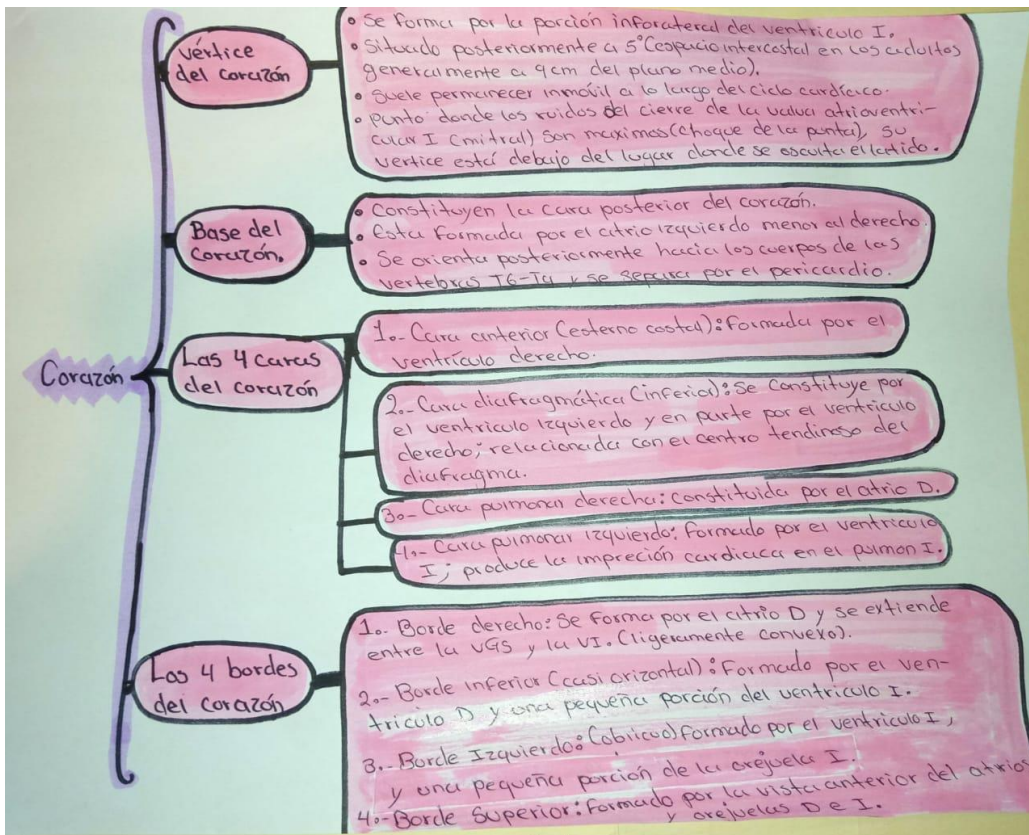 Corazón
Vértice
del corazón
• Se forma por la porción inforateral del ventriculo I.
• Situado posteriormente a 5°(espacio intercostal en los adultos
generalmente a 9cm del plano medio).
• Suele permanecer inmóvil a lo largo del ciclo cardíaco.
• punto donde los ruidos del cierre de la valva atrioventri-
cular I (mitral) son maximos (choque de la punta), su
vertice está debajo del lugar donde se osculta el latido.
Base del
Corazón.
• Constituyen la cara posterior del corazón.
• Esta formada por el atrio izquierdo menor al derecho.
• Se orienta posteriormente hacia los cuerpos de las
vertebras T6-T9 y se separa por el pericardio.
Las 4 caras
del corazón
1.- Cara anterior (esterno costal): formada por el
ventrículo derecho.
2.- Cara diafragmática (inferior): Se constituye por
el ventriculo izquierdo y en parte por el ventriculo
derecho; relacionada con el centro tendinoso del
diafragma.
3.- Cara pulmonar derecha: constituida por el atrio D.
4.- Cara pulmonar izquierdo: Formado por el ventriculo
I; produce la impreción cardiaca en el pulmon I.
Los 4 bordes
del corazón
1.- Borde derecho: Se forma por el atrio D y se extiende
entre la VGS y la VI. (ligeramente convexo).
2.- Borde inferior (casi orizontal): Formado por el ven-
triculo D y una pequeña porción del ventriculo I.
3.- Borde Izquierdo: (oblicuo) formado por el ventriculo I,
y una pequeña porción de la orejuela I.
4.- Borde Superior: Formado por la vista anterior del atrios
y orejuelas D e I.